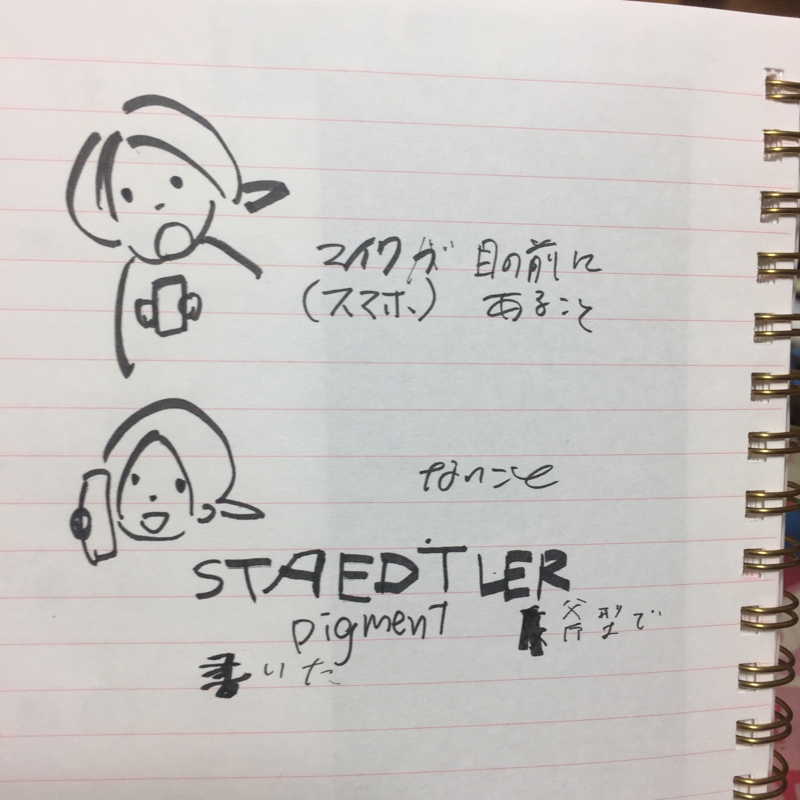 マイクが 目の前に
(スマホ) あること
ないこと
STAEDTLER
pigment 斧型で
書いた